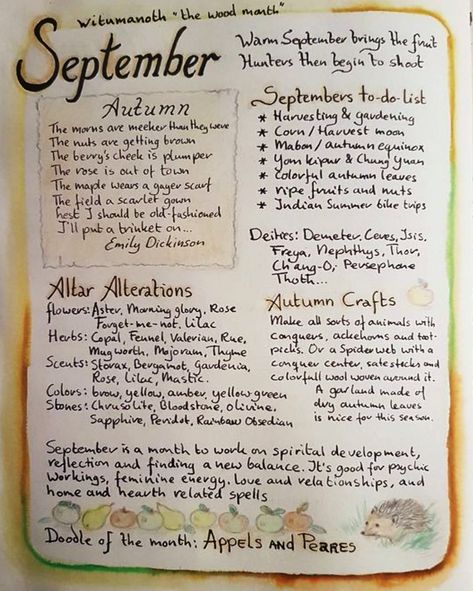 witumanoth "the wood month"
September
Warm September brings the fruit
Hunters then begin to shoot
Autumn
The morns are meeker than they were
The nuts are getting brown
The berry's cheek is plumper
The rose is out of town
The maple wears a gayer scarf
The field a scarlet gown
hest I should be old-fashioned
I'll put a trinket on...
Emily Dickinson
Septembers to-do-list
* Harvesting & gardening
* Corn/Harvest moon
* Mabon/autumn equinox
* Yom kipur & Chung Yuan
* Colorful autumn leaves
* ripe fruits and nuts
* Indian Summer bike trips
Deities: Demeter, Ceres, Isis,
Freya, Nephthys, Thor,
Chang-O, Persephone
Thoth...
Altar Alterations
flowers: Aster, Morning glory, Rose
Forget-me-not, Lilac
Herbs: Copal, Fennel, Valerian, Rue,
Mugworth, Mojoram, Thyme
Scents: Storax, Bergamot, Gardenia,
Rose, Lilac, Mastic.
Colours: brow, yellow, amber, yellow-green
Stones: Chrusolite, Bloodstone, olivine,
Sapphire, Peridot, Rainbow Obsedian
Autumn Crafts
Make all sorts of animals with
conquers, ackehorns and toot-
picks. Or a Spiderweb with a
conquer center, sate sticks and
colorfull wool woven around it.
A garland made of
dry autumn leaves
is nice for this season.
September is a month to work on spirital development,
reflection and finding a new balance. It's good for psychic
workings, feminine energy. love and relationships, and
home and hearth related spells
Doodle of the month: Appels and Perres